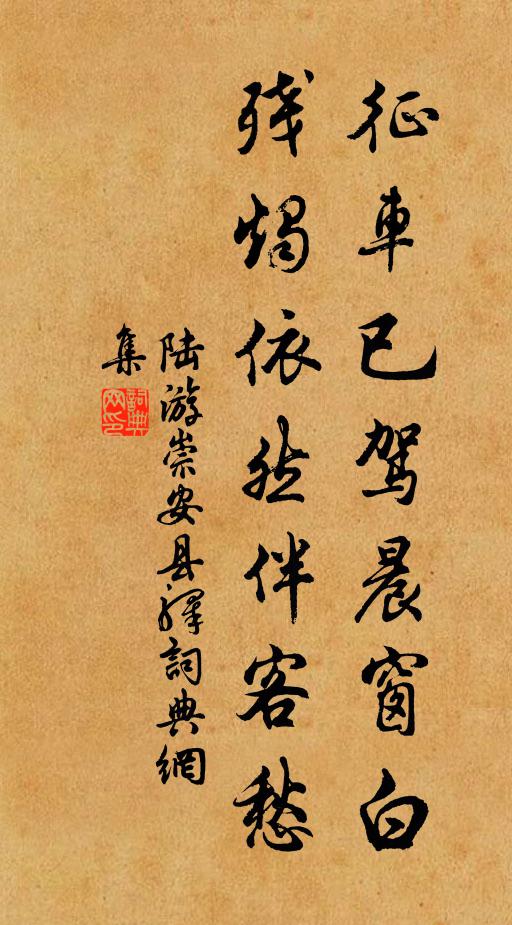 征車已駕晨窗白
殘燭依然伴客愁
陆游崇安县驛詞典網
集
詞典
网印